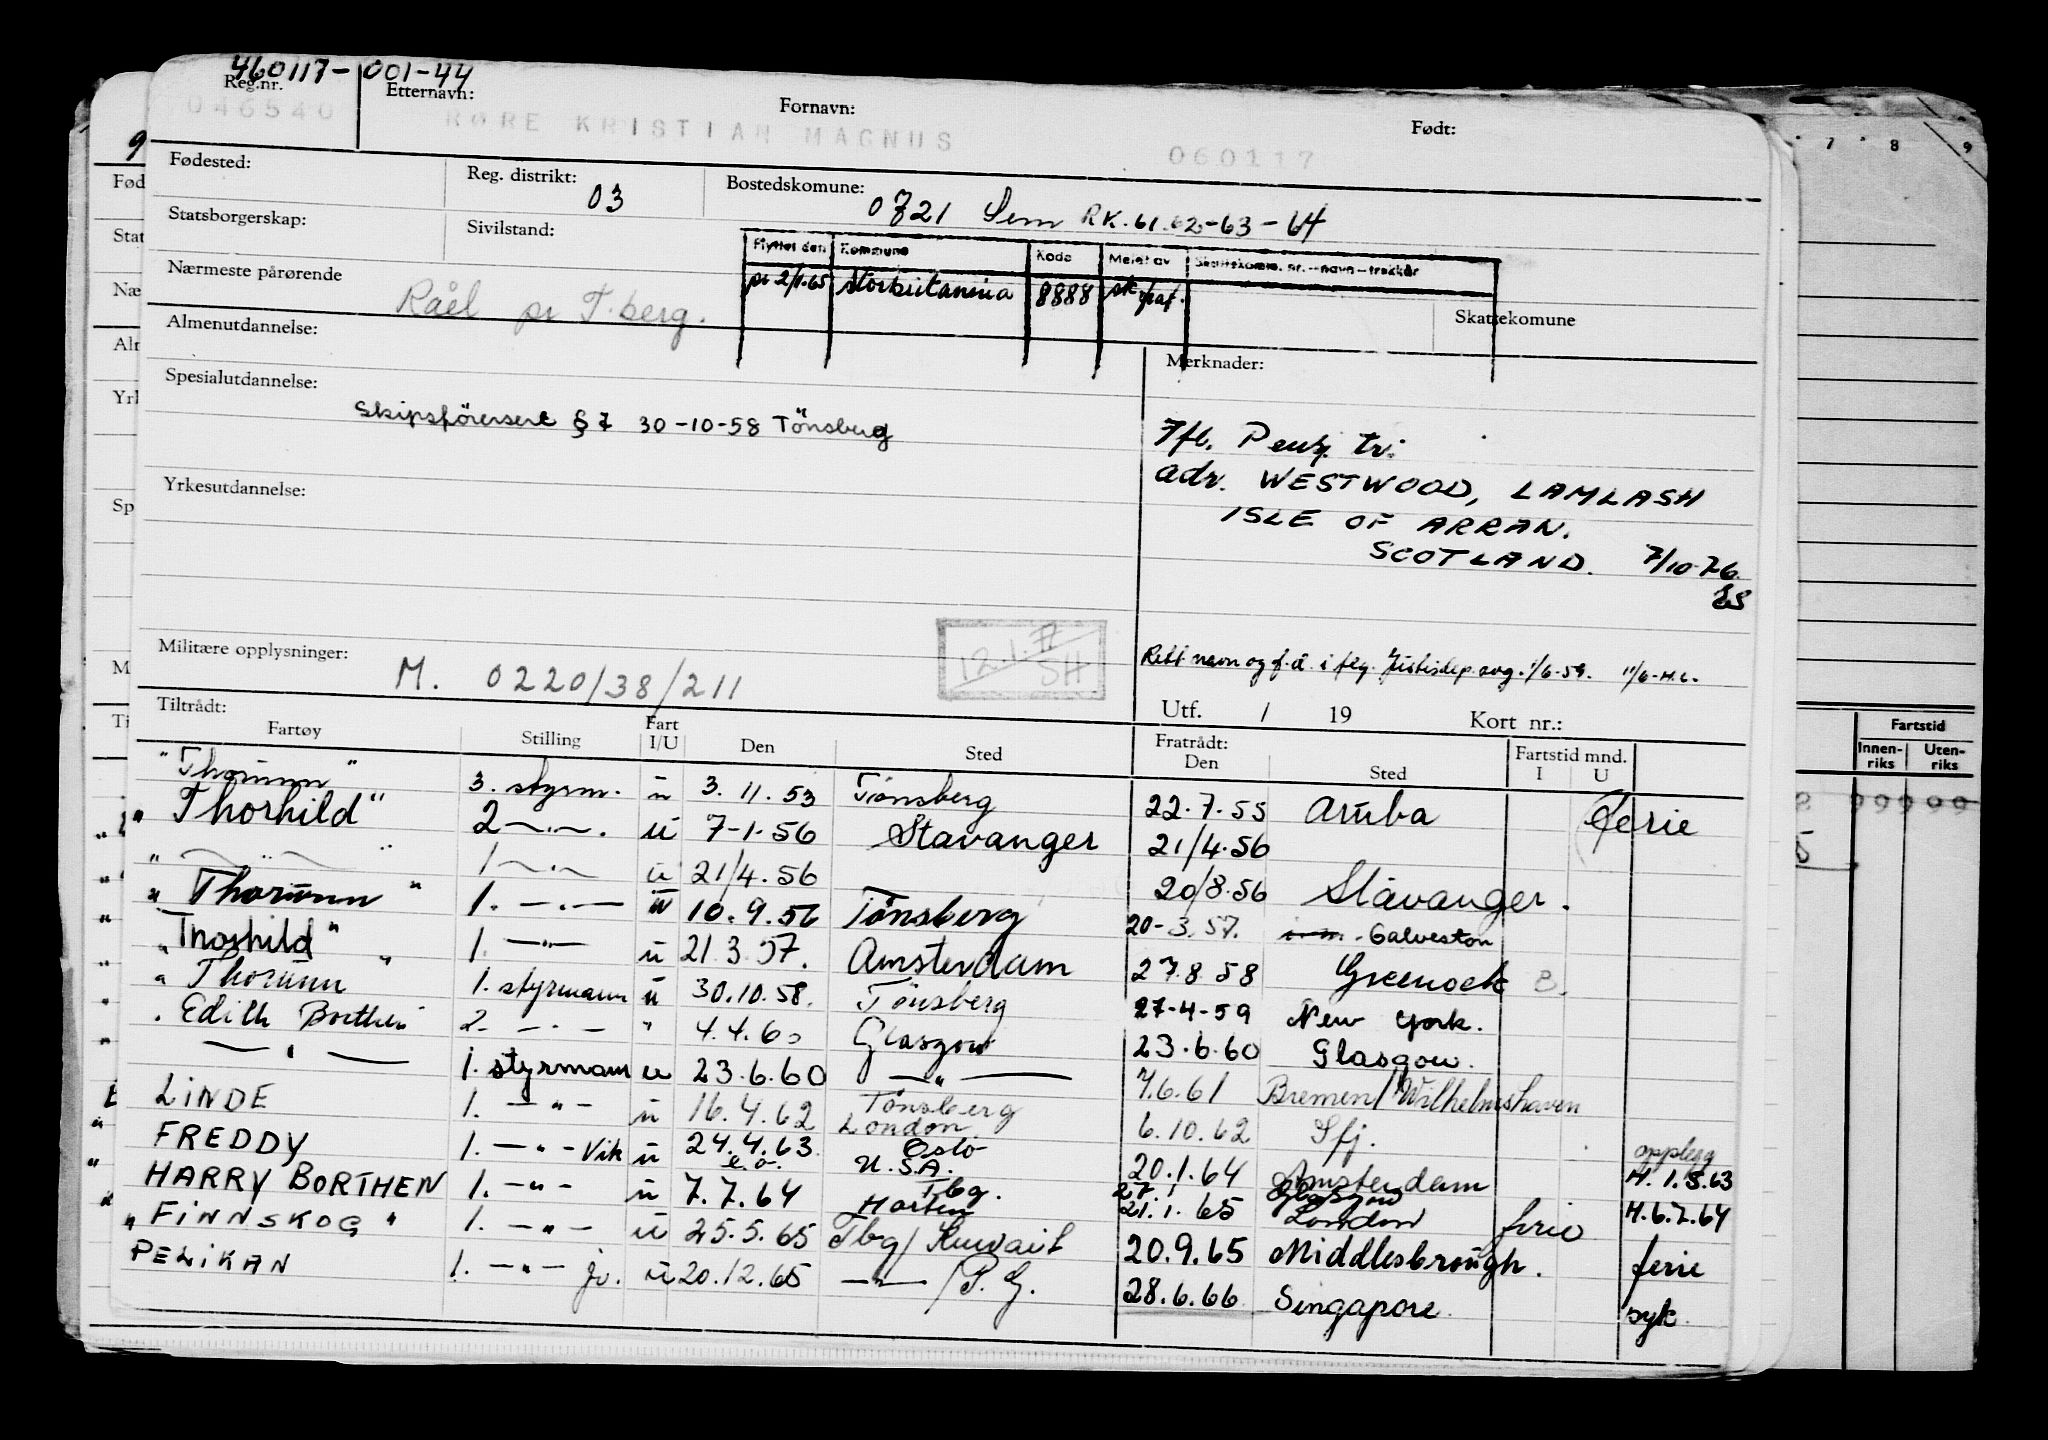 460117-001-44
Reg.nr. Etternavn: Fornavn: Født:
046540 RØRE KRISTIAN MAGNUS 060117
Fødested: Reg. distrikt: 03 Bostedskomune: 0721 Sem RK.61.62-63-64
Statsborgerskap: Sivilstand:
Flyttet den Kommune Kode Meldt av Skattekomm. nr.—navn—trekkår
Nærmeste pårørende Råel pr T.berg. pr 2/1-65 Storbritannia 8888 sk
Skattekomune
Almenutdannelse:
Merknader:
Spesialutdannelse:
Skipsförersert § 7 30-10-58 Tönsberg
7fb. Penzj. tr.
adr. WESTWOOD, LAMLASH
ISLE OF ARRAN.
SCOTLAND. 7/10-76.
Yrkesutdannelse:
12.1. SH
Militære opplysninger: M. 0220/38/211
Rett navn og f.d. i flg. Justisdep. avg. 1/6-59. 11/6-H.C.
Utf. / 19 Kort nr.:
Tiltrådt: Fratrådt: Fartstid mnd.
Fartøy Stilling Fart I/U Den Sted Den Sted I U
"Thorunn" 3. styrm. u 3.11.53 Tönsberg 22.7.55 Aruba ferie
"Thorhild" 2 —.—. u 7-1-56 Stavanger 21/4.56
" — " — " 1 —.— u 21/4.56 20/8.56 Stavanger.
"Thorunn" 1. —.— u 10.9.56 Tönsberg 20-3.57. Galveston
"Thorhild" 1. —"— u 21.3.57. Amsterdam 27.8.58 Greenock B.
"Thorunn" 1. styrmann u 30.10.58. Tönsberg 27-4-59 New York.
Edith Borthen 2. — . — " 4.4.60 Glasgow 23.6.60 Glasgow.
— " — 1. styrmann u 23.6.60 — " — 7.6.61 Bremen/Wilhelmshaven
LINDE 1. — " — u 16.4.62 Tönsberg London 6.10.62 Sfj. opplegg
FREDDY 1. — " — Vik u 24.4.63 Oslo U.S.A. 20.1.64 Amsterdam H.1.5.63
HARRY BORTHEN 1. — " — u 7.7.64 Tbg. Horten 27.1 21.1.65 Glasgow London ferie H.6.7.64
"FINNSKOG" 1. — " — u 25.5.65 Tbg/Kuwait 20.9.65 Middlesbrough. ferie
PELIKAN 1. — " — jv. u 20.12.65 — " — /P.G. 28.6.66 Singapore syk.
7 8 9
Fartstid
Innen-riks Uten-riks